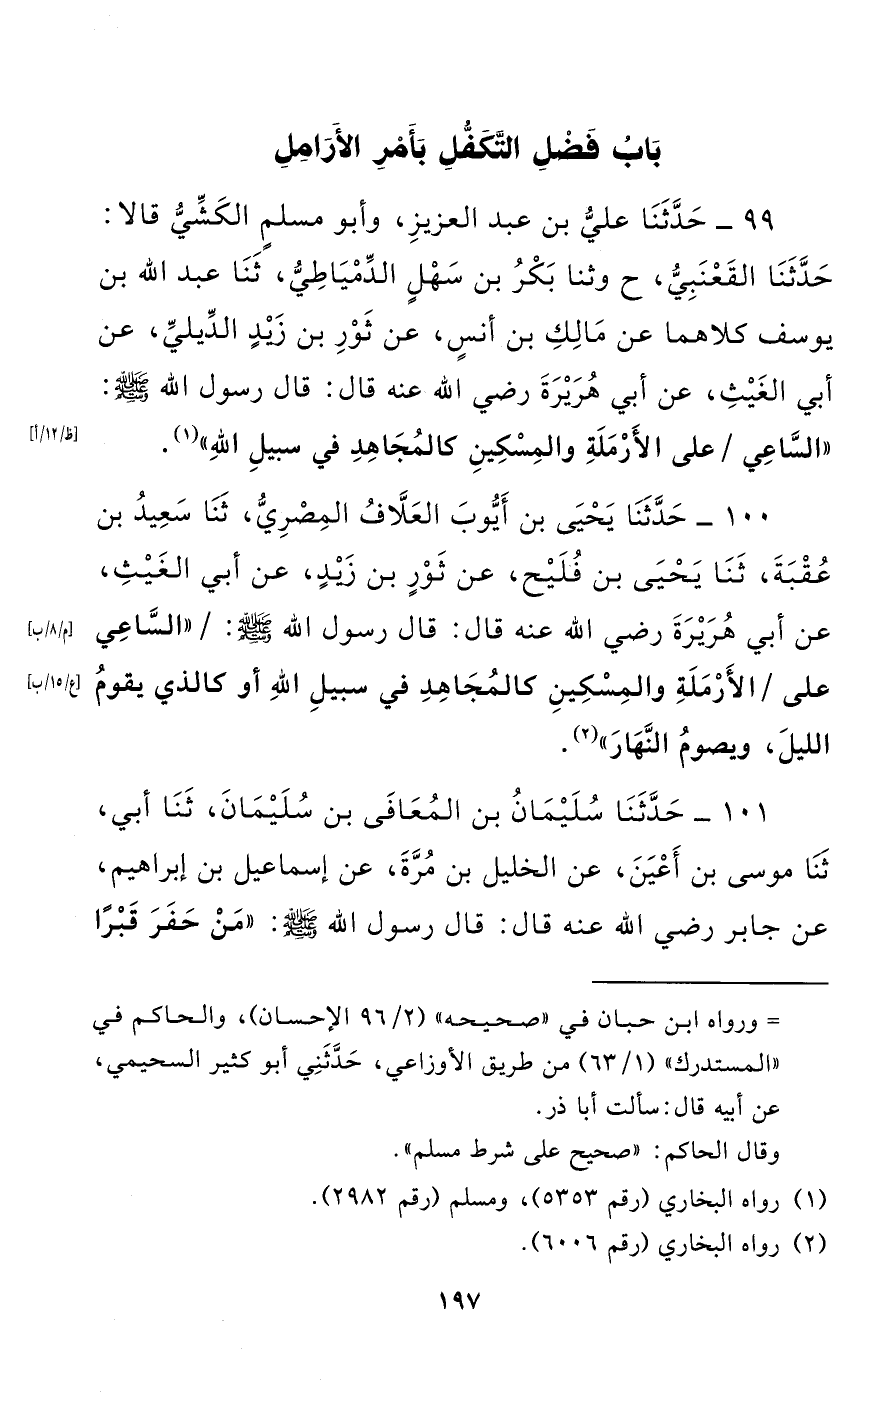 بَابُ فَضْلِ التَّكَفُّلِ بَأَمْرِ الأَرَامِلِ
٩٩ ـ حَدَّثَنَا عليُّ بن عبد العزيزِ، وأبو مسلمٍ الكَشِّيُّ قالا:
حَدَّثَنَا القَعْنَبِيُّ، ح وثنا بَكْرُ بن سَهْلٍ الدِّمْيَاطِيُّ، ثَنَا عبد الله بن
يوسف كلاهما عن مَالِكِ بن أنسٍ، عن ثَوْرِ بن زَيْدٍ الدِّيليِّ، عن
أبي الغَيْثِ، عن أبي هُرَيْرَةَ رضي الله عنه قال: قال رسول الله ﷺ:
«السَّاعِي / على الأَرْمَلَةِ والمِسْكِينِ كالمُجَاهِدِ في سبيلِ اللهِ»(١). [ظ/١٢/أ]
١٠٠ ـ حَدَّثَنَا يَحْيَى بن أَيُّوبَ العَلَّافُ المِصْرِيُّ، ثَنَا سَعِيدُ بن
عُقْبَةَ، ثَنَا يَحْيَى بن فُلَيْحٍ، عن ثَوْرِ بن زَيْدٍ، عن أبي الغَيْثِ،
عن أبي هُرَيْرَةَ رضي الله عنه قال: قال رسول الله ﷺ: / «السَّاعِي [م/٨/ب]
على / الأَرْمَلَةِ والمِسْكِينِ كالمُجَاهِدِ في سبيلِ اللهِ أو كالذي يقومُ [ع/١٥/ب]
الليلَ، ويصومُ النَّهَارَ»(٢).
١٠١ ـ حَدَّثَنَا سُلَيْمَانُ بن المُعَافَى بن سُلَيْمَانَ، ثَنَا أبي،
ثَنَا موسى بن أَعْيَنَ، عن الخليل بن مُرَّةَ، عن إسماعيل بن إبراهيم،
عن جابر رضي الله عنه قال: قال رسول الله ﷺ: «مَنْ حَفَرَ قَبْرًا
= ورواه ابن حبان في «صحيحه» (٢/ ٩٦ الإحسان)، والحاكم في
«المستدرك» (١/ ٦٣) من طريق الأوزاعي، حَدَّثَنِي أبو كثير السحيمي،
عن أبيه قال: سألت أبا ذر.
وقال الحاكم: «صحيح على شرط مسلم».
(١) رواه البخاري (رقم ٥٣٥٣)، ومسلم (رقم ٢٩٨٢).
(٢) رواه البخاري (رقم ٦٠٠٦).
١٩٧